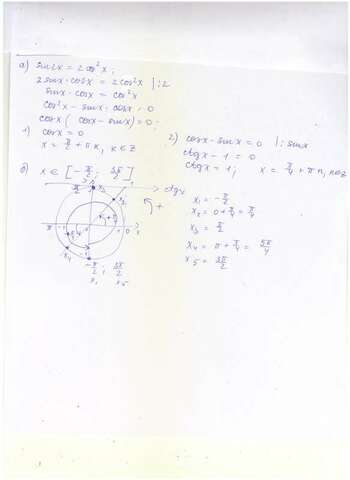 а) sin2x = 2cos²x;
2sinx·cosx = 2cos²x |:2
sinx·cosx = cos²x
cos²x − sinx·cosx = 0
cosx(cosx − sinx) = 0;
1) cosx = 0
x = π/2 + πk, k ∈ Z
2) cosx − sinx = 0 |: sinx
ctgx − 1 = 0
ctgx = 1; x = π/4 + πn, n∈Z
б) x ∈ [−π/2; 3π/2]
ctgx
x₁ = −π/2
x₂ = 0 + π/4 = π/4
x₃ = π/2
x₄ = π + π/4 = 5π/4
x₅ = 3π/2
π/2 x₃
x₂
π
0
x₄
−π/2; 3π/2
x₁ x₅